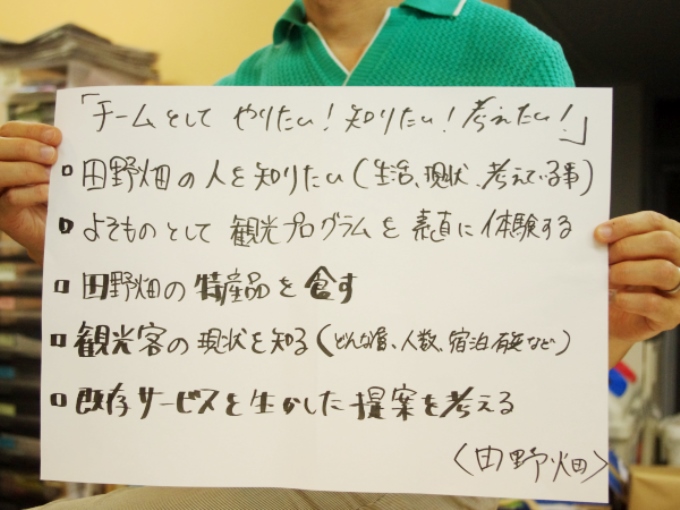 「チームとして やりたい！知りたい！考えたい！」
▫ 田野畑の人を知りたい（生活、現状、考えている事）
▫ よそものとして 観光プログラムを 素直に体験する
▫ 田野畑の特産品を食す
▫ 観光客の現状を知る（どんな客、人数、宿泊有無など）
▫ 既存サービスを生かした提案を考える
〈田野畑〉